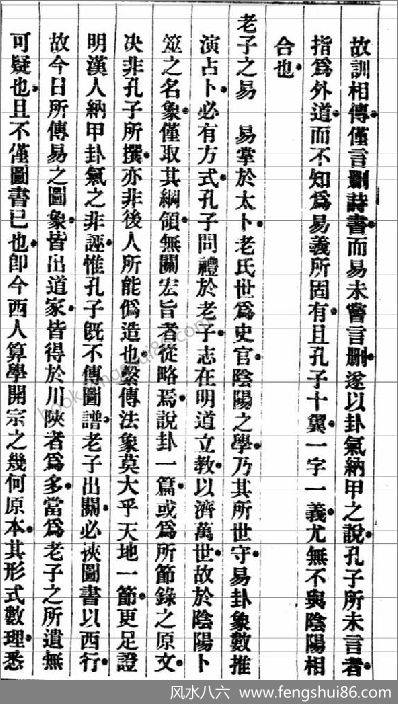 故訓相傳僅言刪詩書而易未嘗言刪遂以卦氣納甲之說孔子所未言者
指爲外道而不知爲易義所固有且孔子十翼一字一義尤無不與陰陽相
合也
老子之易　易掌於太卜老氏世爲史官陰陽之學乃其所世守易卦象數推
演占卜必有方式孔子問禮於老子志在明道立教以濟萬世故於陰陽卜
筮之名象僅取其綱領無關宏旨者從略焉說卦一篇或爲所節錄之原文
决非孔子所撰亦非後人所能僞造也繫傳法象莫大乎天地一節更足證
明漢人納甲卦氣之非誣惟孔子既不傳圖譜老子出關必挾圖書以西行
故今日所傳易之圖象皆出道家皆得於川陝者爲多當爲老子之所遺無
可疑也且不僅圖書已也卽今西人算學開宗之幾何原本其形式數理悉
风水八六 | www.fengshui86.com